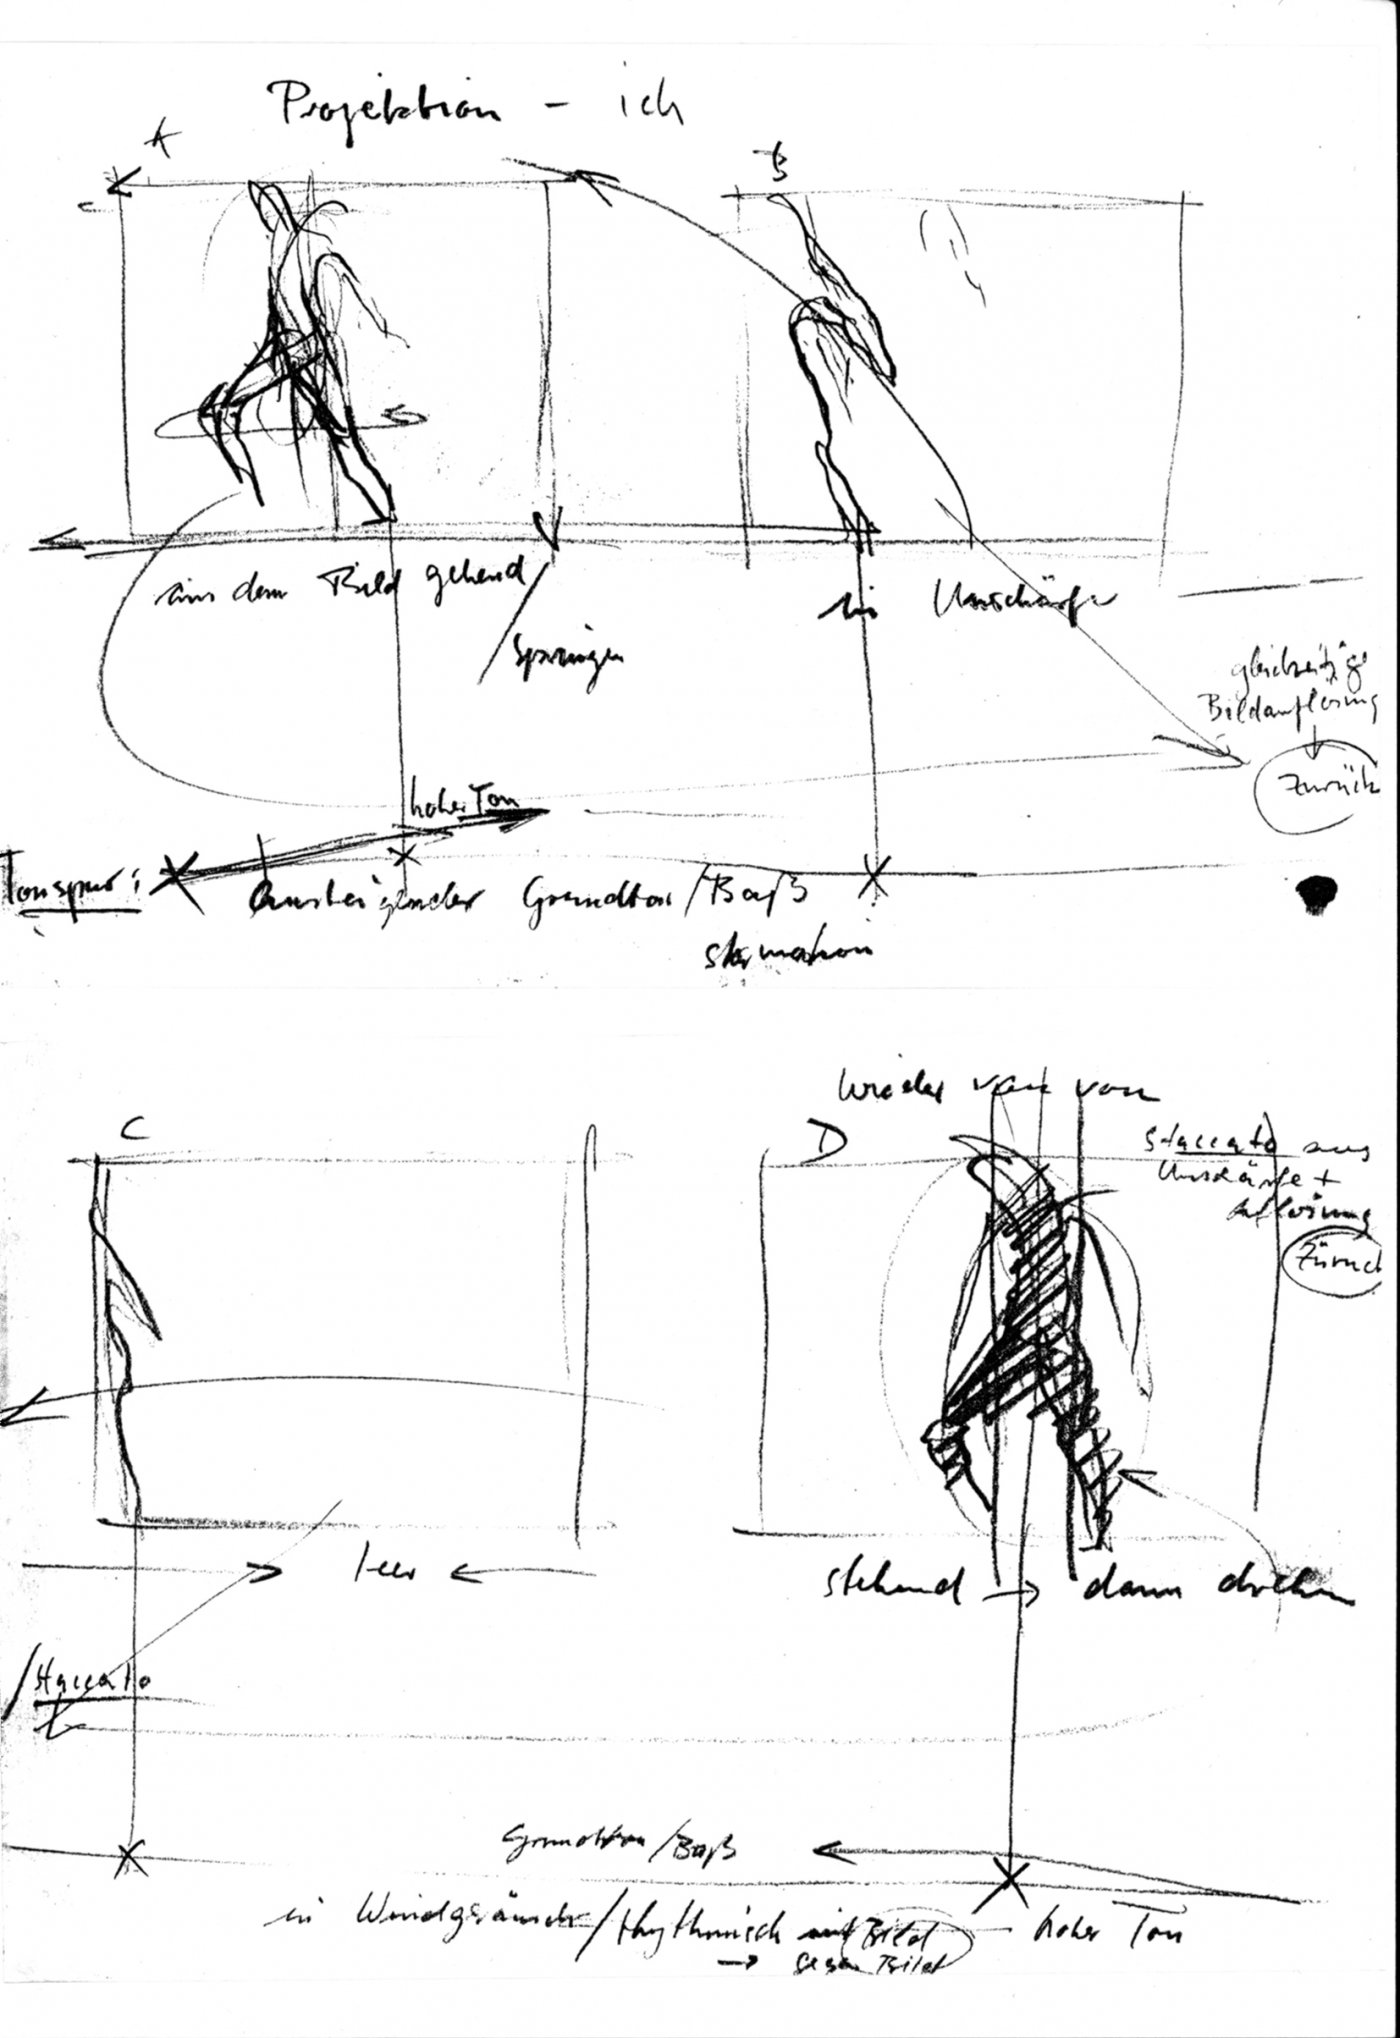 Projektion - ich
A
B
aus dem Bild gehend
/ springen
in Unschärfe
gleichzeitige
Bildauflösung
Zurück
hoher Ton
Tonspur:
Ansteigender Grundton/Baß
C
D
wieder von vorn
staccato aus
Unschärfe +
Auflösung
Zurück
leer
stehend → dann drehen
/staccato
Grundton/Baß
in Windgeräusch/rhythmisch mit Bild - hoher Ton
→ gegen Bild